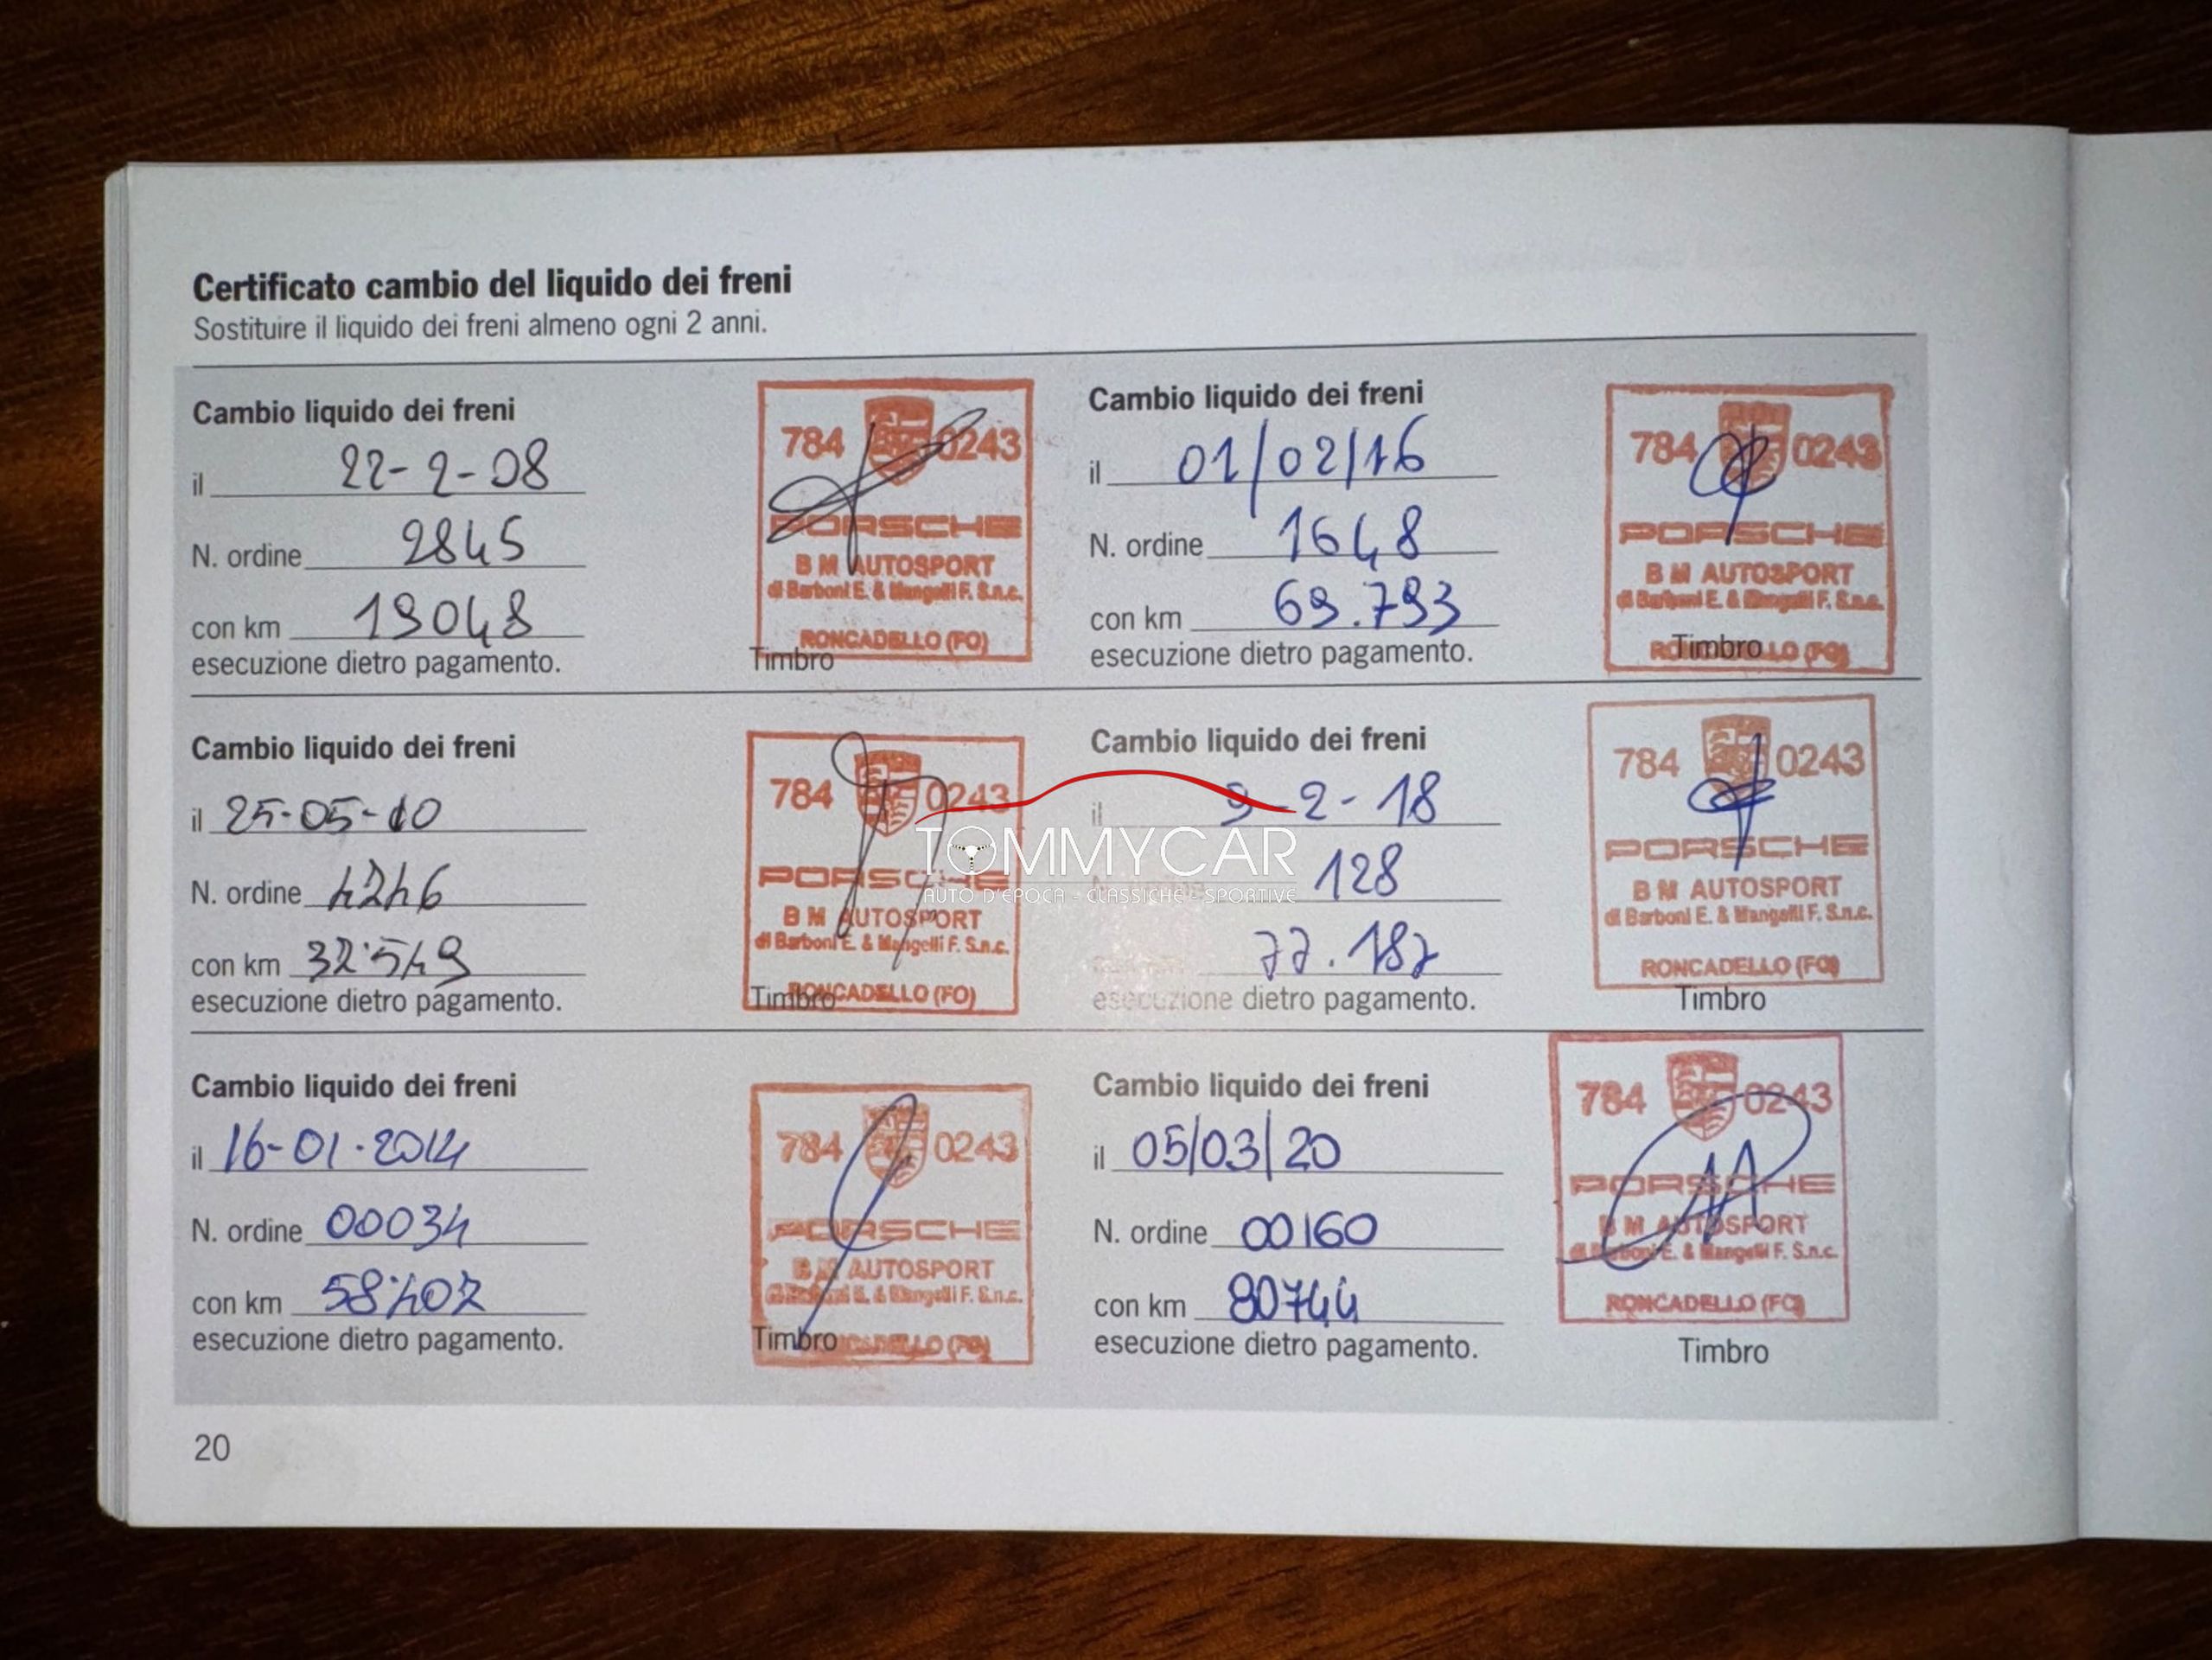 Certificato cambio del liquido dei freni
Sostituire il liquido dei freni almeno ogni 2 anni.
Cambio liquido dei freni
il 22-2-08
N. ordine 2845
con km 19048
esecuzione dietro pagamento.
784 0243
PORSCHE
B M AUTOSPORT
di Barboni E. & Mangelli F. S.n.c.
RONCADELLO (FO)
Timbro
Cambio liquido dei freni
il 25-05-10
N. ordine 4246
con km 32'549
esecuzione dietro pagamento.
784 0243
PORSCHE
B M AUTOSPORT
di Barboni E. & Mangelli F. S.n.c.
RONCADELLO (FO)
Timbro
Cambio liquido dei freni
il 16-01-2014
N. ordine 00034
con km 58'402
esecuzione dietro pagamento.
784 0243
PORSCHE
B M AUTOSPORT
di Barboni E. & Mangelli F. S.n.c.
RONCADELLO (FO)
Timbro
Cambio liquido dei freni
il 01/02/16
N. ordine 1648
con km 69.793
esecuzione dietro pagamento.
784 0243
PORSCHE
B M AUTOSPORT
di Barboni E. & Mangelli F. S.n.c.
RONCADELLO (FO)
Timbro
Cambio liquido dei freni
il 9-2-18
128
77.187
esecuzione dietro pagamento.
784 0243
PORSCHE
B M AUTOSPORT
di Barboni E. & Mangelli F. S.n.c.
RONCADELLO (FO)
Timbro
Cambio liquido dei freni
il 05/03/20
N. ordine 00160
con km 80744
esecuzione dietro pagamento.
784 0243
PORSCHE
B M AUTOSPORT
di Barboni E. & Mangelli F. S.n.c.
RONCADELLO (FO)
Timbro
TOMMYCAR
AUTO D'EPOCA - CLASSICHE - SPORTIVE
20